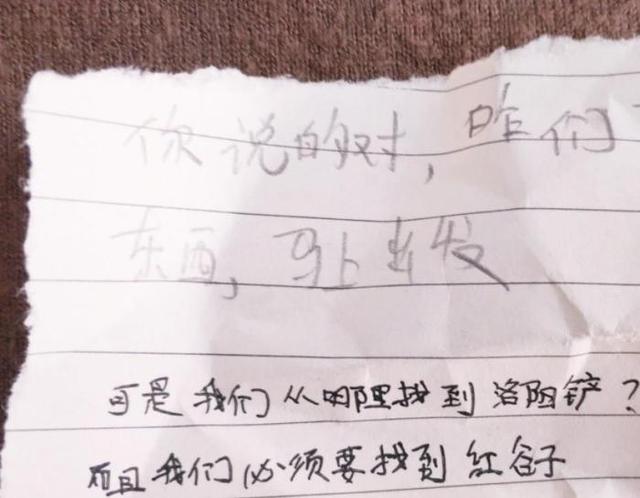 你说的对，咱们
东西，马上出发
可是我们从哪里找到洛阳铲？
而且我们必须要找到红谷子